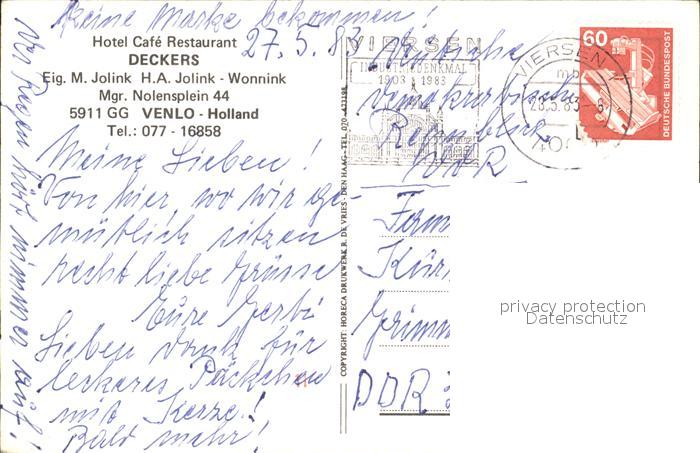 keine Marke bekommen!
27.5.83
Hotel Café Restaurant
DECKERS
Eig. M. Jolink H.A. Jolink - Wonnink
Mgr. Nolensplein 44
5911 GG VENLO - Holland
Tel.: 077 - 16858
Meine Lieben!
Von hier, wo wir ge-
mütlich sitzen
recht liebe Grüsse
Eure Gerti
Lieben Dank für
leckeres Päckchen
mit Kerze!
Bald mehr!
Der Regen hört nimmer auf!
COPYRIGHT: HORECA DRUKWERK R. DE VRIES - DEN HAAG - TEL. 070
VIERSEN
INDUSTRIEDENKMAL
1903 1983
VIERSEN 1
mb
28.5.83-8
60
DEUTSCHE BUNDESPOST
Deutsche
demokratische
Republik
DDR
Fam
Kür
Grimm
DDR
privacy protection
Datenschutz